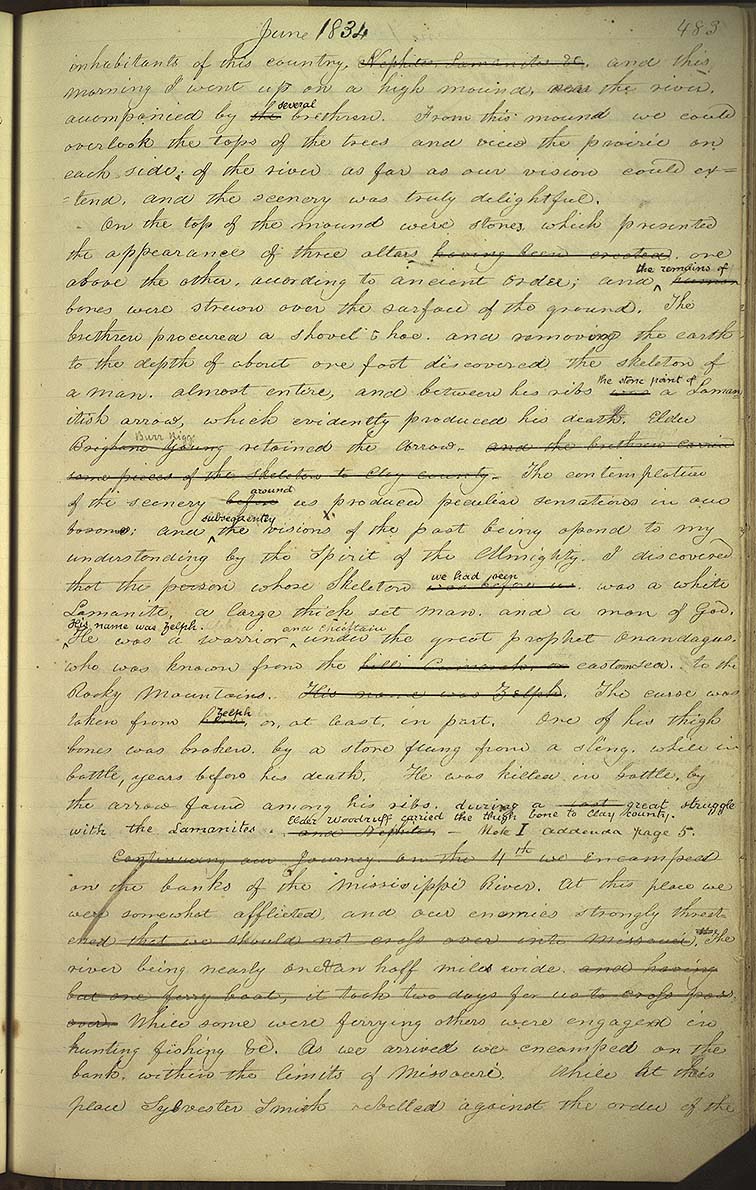 June 1834 483
inhabitants of this country, Nephites, Lamanites &c. and this
morning I went up on a high mound, near the river,
accompanied by the several brethren. From this mound we could
overlook the tops of the trees and view the prairie on
each side, of the river as far as our vision could ex=
=tend, and the scenery was truly delightful.
On the top of the mound were stones which presented
the appearance of three altars having been erected, one
above the other, according to ancient order; and the remains of human
bones were strewn over the surface of the ground. The
brethren procured a shovel & hoe. and removing the earth
to the depth of about one foot discovered the skeleton of
a man. almost entire, and between his ribs was the stone point of a Laman
itish arrow, which evidently produced his death. Elder
Brigham Young Burr Riggs retained the Arrow. and the brethren carried
some pieces of the skeleton to Clay county. The contemplation
of the scenery before around us produced peculiar sensations in our
bosoms; and subsequently the visions of the past being opend to my
understanding by the Spirit of the Almighty. I discovered
that the person whose Skeleton was before us we had seen was a white
Lamanite, a large thick set man. and a man of God.
His name was Zelph.
He was a warrior and chieftain under the great prophet Onandagus.
who was known from the hill Cumorah, or eastern sea. to the
Rocky Mountains. His name was Zelph. The curse was
taken from Zelph, or, at least, in part. One of his thigh
bones was broken, by a stone flung from a sling. while in
battle, years before his death. He was killed in battle, by
the arrow found among his ribs. during a last great struggle
Elder Woodruff carried the thigh bone to Clay county.
with the Lamanites. and Nephites – Note I addenda page 5.
Continuing our Journey on the 4th we Encamped
on the banks of the Mississippi River. At this place we
were somewhat afflicted, and our enemies strongly threat-
ened that we should not cross over into Missouri, The
river being nearly one & an half miles wide. and having
but one ferry boat, it took two days for us to cross
over. While some were ferrying others were engaged in
hunting fishing &c. As we arrived we encamped on the
bank. within the limits of Missouri. While at this
place Sylvester Smith rebelled against the order of the